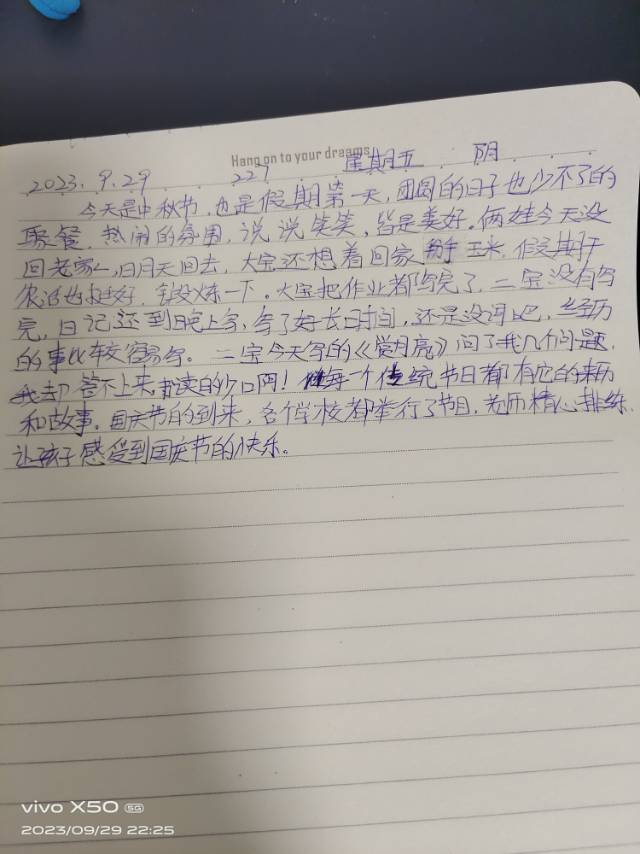 Hang on to your dreams
2023.9.29 227 星期五 阴
今天是中秋节,也是假期第一天,团圆的日子也少不了的
聚餐,热闹的氛围,说说笑笑,皆是美好。俩娃今天没
回老家,明天回去,大宝还想着回家掰玉米,假期干
农活也挺好,锻炼一下。大宝把作业都写完了,二宝没有写
完,日记还到晚上写,写了好长时间,还是没词吧,经历
的事比较容易写。二宝今天写的《赏月亮》问了我几个问题,
我却答不上来,书读的少口阿!每一个传统节日都有它的来历
和故事。国庆节的到来,各个学校都举行了节目,老师精心排练,
让孩子感受到国庆节的快乐。
vivo X50 5G
2023/09/29 22:25